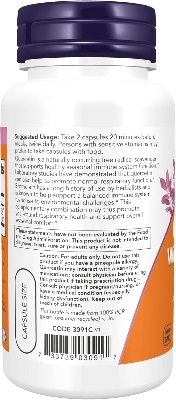 Suggested Usage: Take 2 capsules 20 minutes before
meals, twice daily. Persons with sensitive stomachs may
prefer to take capsules with food.
Quercetin is a naturally occurring free radical scavenger
that supports healthy seasonal immune system function.*
Laboratory studies have demonstrated that quercetin
can also help to promote normal respiratory function.*
Bromelain has a long history of use by herbalists and
is known to help support a balanced immune system
response to environmental challenges.* This
complementary combination may thus promote
immune and respiratory health and support overall
seasonal comfort.*
*These statements have not been evaluated by the Food
and Drug Administration. This product is not intended to
diagnose, treat, cure or prevent any disease.
Caution: For adults only. Do not use this
product if you have a pineapple allergy.
Quercetin may interact with a variety of
medications; consult physician before using
this product if taking prescription drugs.
Consult physician if pregnant/nursing, or
have a medical condition (especially
kidney dysfunction). Keep out of
reach of children.
This bottle is made from 100% PCR
(post-consumer recycled)
CODE 3091C V1
CAPSULE SIZE
7 33739 03091